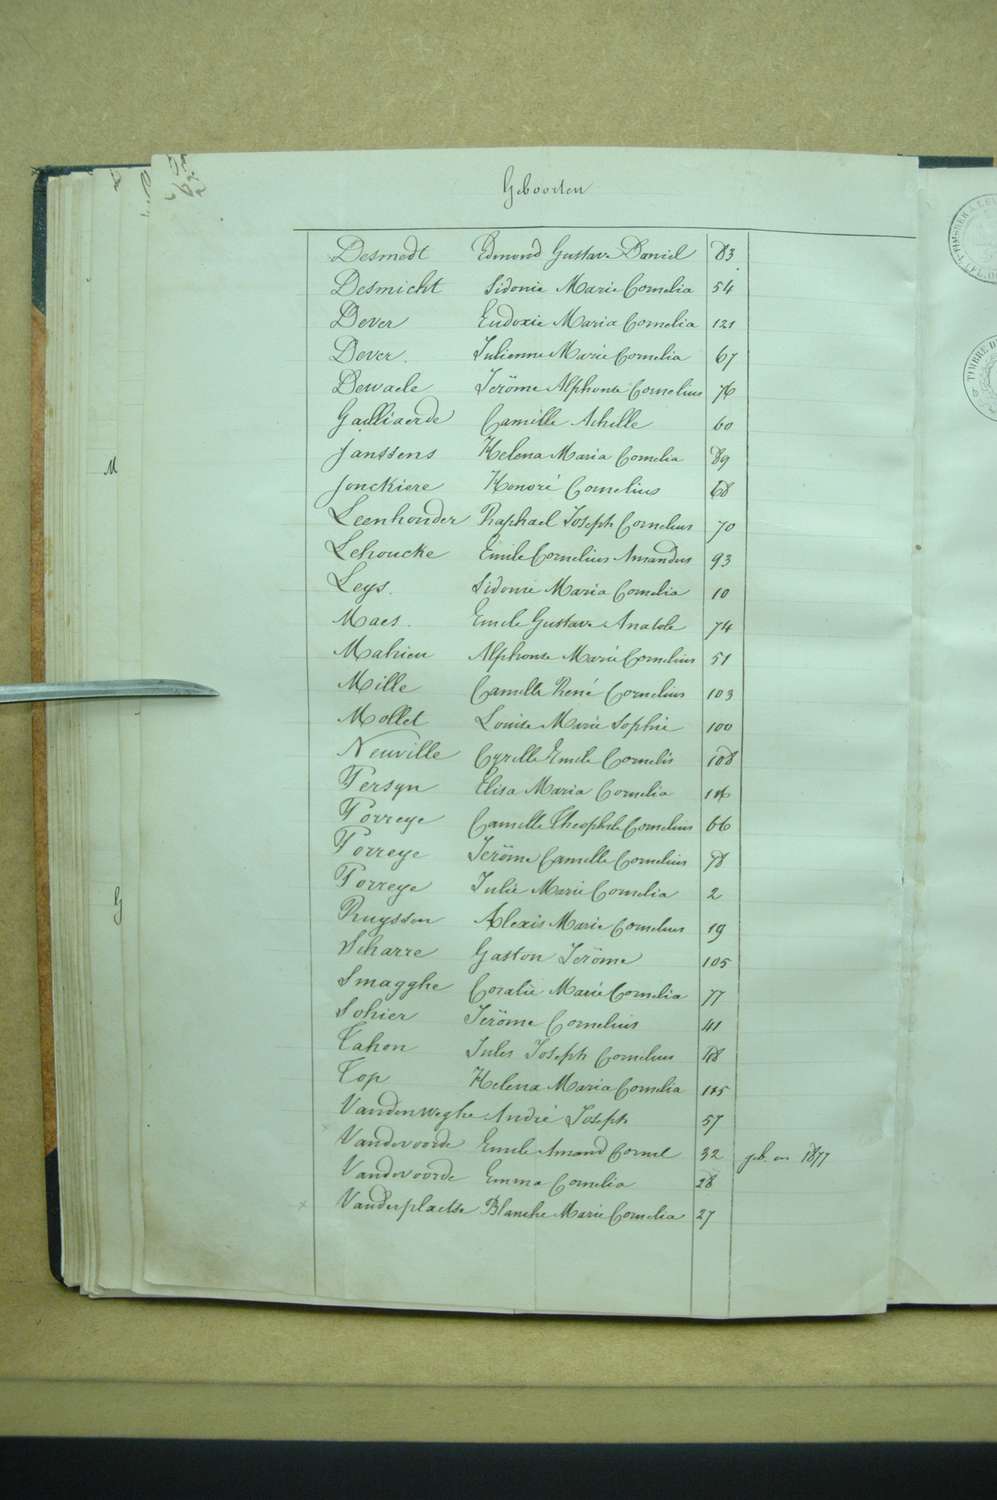 Geboorten
Desmedt Edmond Gustave Daniel 83
Desmicht Sidonie Marie Cornelia 54
Dever Eudoxie Maria Cornelia 121
Dever. Julienne Marie Cornelia 67
Dewaele Jerôme Alphonse Cornelius 76
Gailliaerde Camille Achille 60
Janssens Helena Maria Cornelia 89
Jonckiere Honoré Cornelius 68
Leenhouder Raphael Joseph Cornelius 70
Lehoucke Emile Cornelius Amandus 93
Leys. Sidonie Maria Cornelia 10
Maes. Emile Gustave Anatole 74
Mahieu Alphonse Marie Cornelius 51
M
Mille Camille René Cornelius 103
Mollet Louise Marie Sophie 100
Neuville Cyrille Emile Cornelis 108
Persyn Elisa Maria Cornelia
Porreye Camille Theophile Cornelius 66
Porreye Jerôme Camille Cornelius 98
Porreye Julie Marie Cornelia 2
G
Ruyssen Alexis Marie Cornelius 19
Scharre Gaston Jerôme 105
Smagghe Coralie Marie Cornelia 77
Sohier Jerôme Cornelius 41
Tahon Jules Joseph Cornelius
Top Helena Maria Cornelia 115
Vandenweghe André Joseph 57
Vandevoorde Emile Amand Cornel 32 geb. en 1877
Vandevoorde Emma Cornelia 28
Vanderplaetse Blanche Marie Cornelia 27